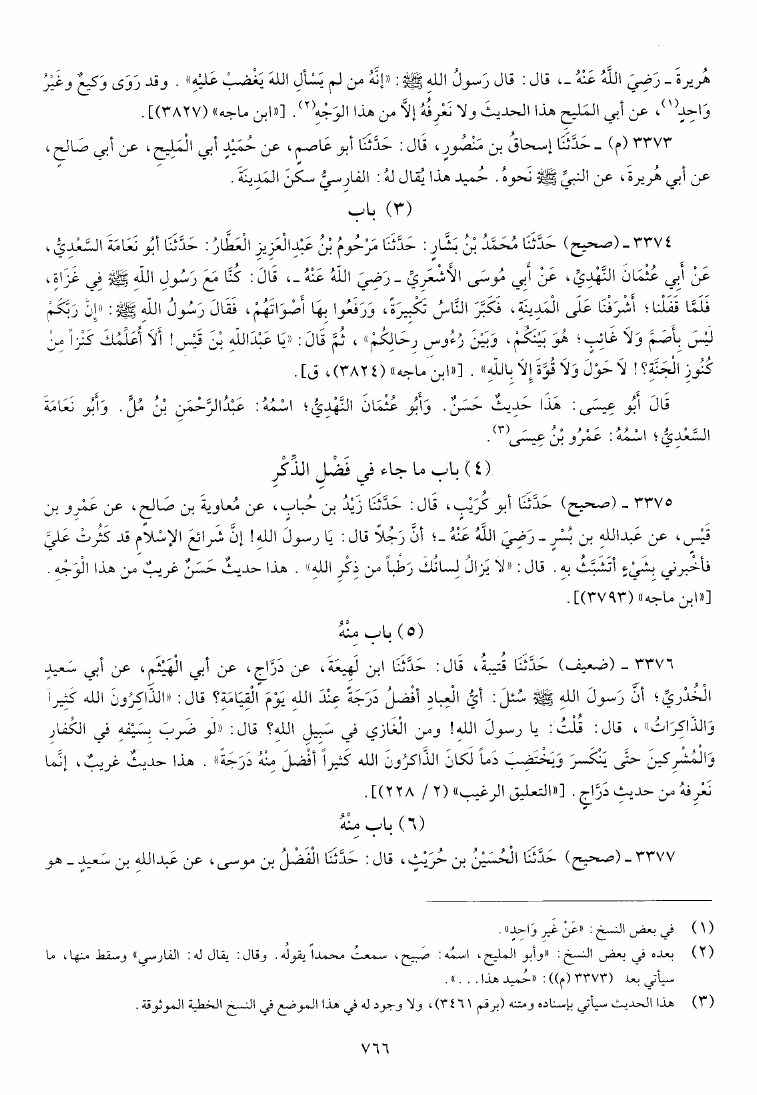 هُريرةَ ـ رَضِيَ اللَّهُ عَنْهُ ـ، قال: قال رَسولُ اللهِ ﷺ: «إنَّهُ من لم يَسْألِ اللهَ يَغْضبْ عَليْهِ». وقد رَوَى وَكيعٌ وغَيْرُ
وَاحِدٍ(١)، عن أبي المَليحِ هذا الحديثَ ولا نَعْرِفُهُ إلَّا من هذا الوَجْهِ(٢). [«ابن ماجه» (٣٨٢٧)].
٣٣٧٣ (م) ـ حَدَّثَنَا إسحاقُ بن مَنْصُورٍ، قَال: حَدَّثَنَا أبو عَاصمٍ، عن حُمَيْدٍ أبي الْمَلِيحِ، عن أبي صَالحٍ،
عن أبي هُريرةَ، عن النبيِّ ﷺ نَحوهُ. حُميد هذا يُقال لهُ: الفارسيُّ سكَنَ المَدِينَةَ.
(٣) باب
٣٣٧٤ ـ (صحيح) حَدَّثَنَا مُحَمَّدُ بْنُ بَشَّارٍ: حَدَّثَنَا مَرْحُومُ بْنُ عَبْدِالْعَزِيزِ الْعَطَّارُ: حَدَّثَنَا أَبُو نَعَامَةَ السَّعْدِيُّ،
عَنْ أَبِي عُثْمَانَ النَّهْدِيِّ، عَنْ أَبِي مُوسَى الأَشْعَرِيِّ ـ رَضِيَ اللَّهُ عَنْهُ ـ، قَالَ: كُنَّا مَعَ رَسُولِ اللهِ ﷺ فِي غَزَاةٍ،
فَلَمَّا قَفَلْنَا؛ أَشْرَفْنَا عَلَى الْمَدِينَةِ، فَكَبَّرَ النَّاسُ تَكْبِيرَةً، وَرَفَعُوا بِهَا أَصْوَاتَهُمْ، فَقَالَ رَسُولُ اللهِ ﷺ: «إِنَّ رَبَّكُمْ
لَيْسَ بِأَصَمَّ وَلاَ غَائِبٍ؛ هُوَ بَيْنَكُمْ، وَبَيْنَ رُءُوسِ رِحَالِكُمْ»، ثُمَّ قَالَ: «يَا عَبْدَاللهِ بْنَ قَيْسٍ! أَلاَ أُعَلِّمُكَ كَنْزاً مِنْ
كُنُوزِ الْجَنَّةِ؟! لاَ حَوْلَ وَلاَ قُوَّةَ إِلاَّ بِاللهِ». [«ابن ماجه» (٣٨٢٤)، ق].
قَالَ أَبُو عِيسَى: هَذَا حَدِيثٌ حَسَنٌ. وَأَبُو عُثْمَانَ النَّهْدِيُّ؛ اسْمُهُ: عَبْدُالرَّحْمَنِ بْنُ مُلٍّ. وَأَبُو نَعَامَةَ
السَّعْدِيُّ؛ اسْمُهُ: عَمْرُو بْنُ عِيسَى(٣).
(٤) باب ما جاء في فَضْلِ الذِّكْرِ
٣٣٧٥ ـ (صحيح) حَدَّثَنَا أبو كُرَيْبٍ، قَال: حَدَّثَنَا زَيْدُ بن حُبابٍ، عن مُعاويةَ بن صَالحٍ، عن عَمْرِو بن
قَيْسٍ، عن عَبداللهِ بن بُسْرٍ ـ رَضِيَ اللَّهُ عَنْهُ ـ؛ أنَّ رَجُلاً قال: يَا رسولَ اللهِ! إنَّ شَرائعَ الإسْلامِ قد كَثُرتْ عَليَّ
فأخْبرني بِشَيْءٍ أتَشَبَّثُ بهِ. قال: «لاَ يَزالُ لِسانُكَ رَطْباً من ذِكْرِ اللهِ». هذا حديثٌ حَسَنٌ غريبٌ من هذا الْوَجْهِ.
[«ابن ماجه» (٣٧٩٣)].
(٥) باب مِنْهُ
٣٣٧٦ ـ (ضعيف) حَدَّثَنَا قُتيبةُ، قَال: حَدَّثَنَا ابن لَهِيعَةَ، عن دَرَّاجٍ، عن أبي الْهَيْثَمِ، عن أبي سَعيدٍ
الْخُدْريِّ؛ أنَّ رَسولَ اللهِ ﷺ سُئلَ: أيُّ العِبادِ أفْضلُ دَرَجَةً عِنْدَ اللهِ يَوْمَ الْقِيَامَةِ؟ قال: «الذَّاكِرُونَ الله كَثِيراً
وَالذَّاكِرَاتُ»، قال: قُلْتُ: يا رسولَ اللهِ! ومن الْغَازي في سَبِيلِ اللهِ؟ قال: «لَو ضَربَ بِسَيْفِهِ في الكُفارِ
وَالْمُشْرِكينَ حتَّى يَنْكَسرَ وَيَخْتَضِبَ دَماً لَكانَ الذَّاكِرُونَ الله كَثيراً أفْضلَ مِنْهُ دَرَجَةً». هذا حديثٌ غريبٌ، إنَّما
نَعْرِفهُ من حديثِ دَرَّاجٍ. [«التعليق الرغيب» (٢/ ٢٢٨)].
(٦) باب مِنْهُ
٣٣٧٧ ـ (صحيح) حَدَّثَنَا الْحُسَيْنُ بن حُرَيْثٍ، قال: حَدَّثَنَا الْفَضْلُ بن موسى، عن عَبداللهِ بن سَعيدٍ ـ هو
(١) في بعض النسخ: «عَنْ غَيرِ وَاحِدٍ».
(٢) بعده في بعض النسخ: «وأبو المليح، اسمُه: صَبيح، سمعتُ محمداً يقولُه. وقال: يقال له: الفارسي» وسقط منها، ما
سيأتي بعد (٣٣٧٣ (م)): «حُميد هذا...».
(٣) هذا الحديث سيأتي بإسناده ومتنه (برقم ٣٤٦١)، ولا وجود له في هذا الموضع في النسخ الخطية الموثوقة.
٧٦٦